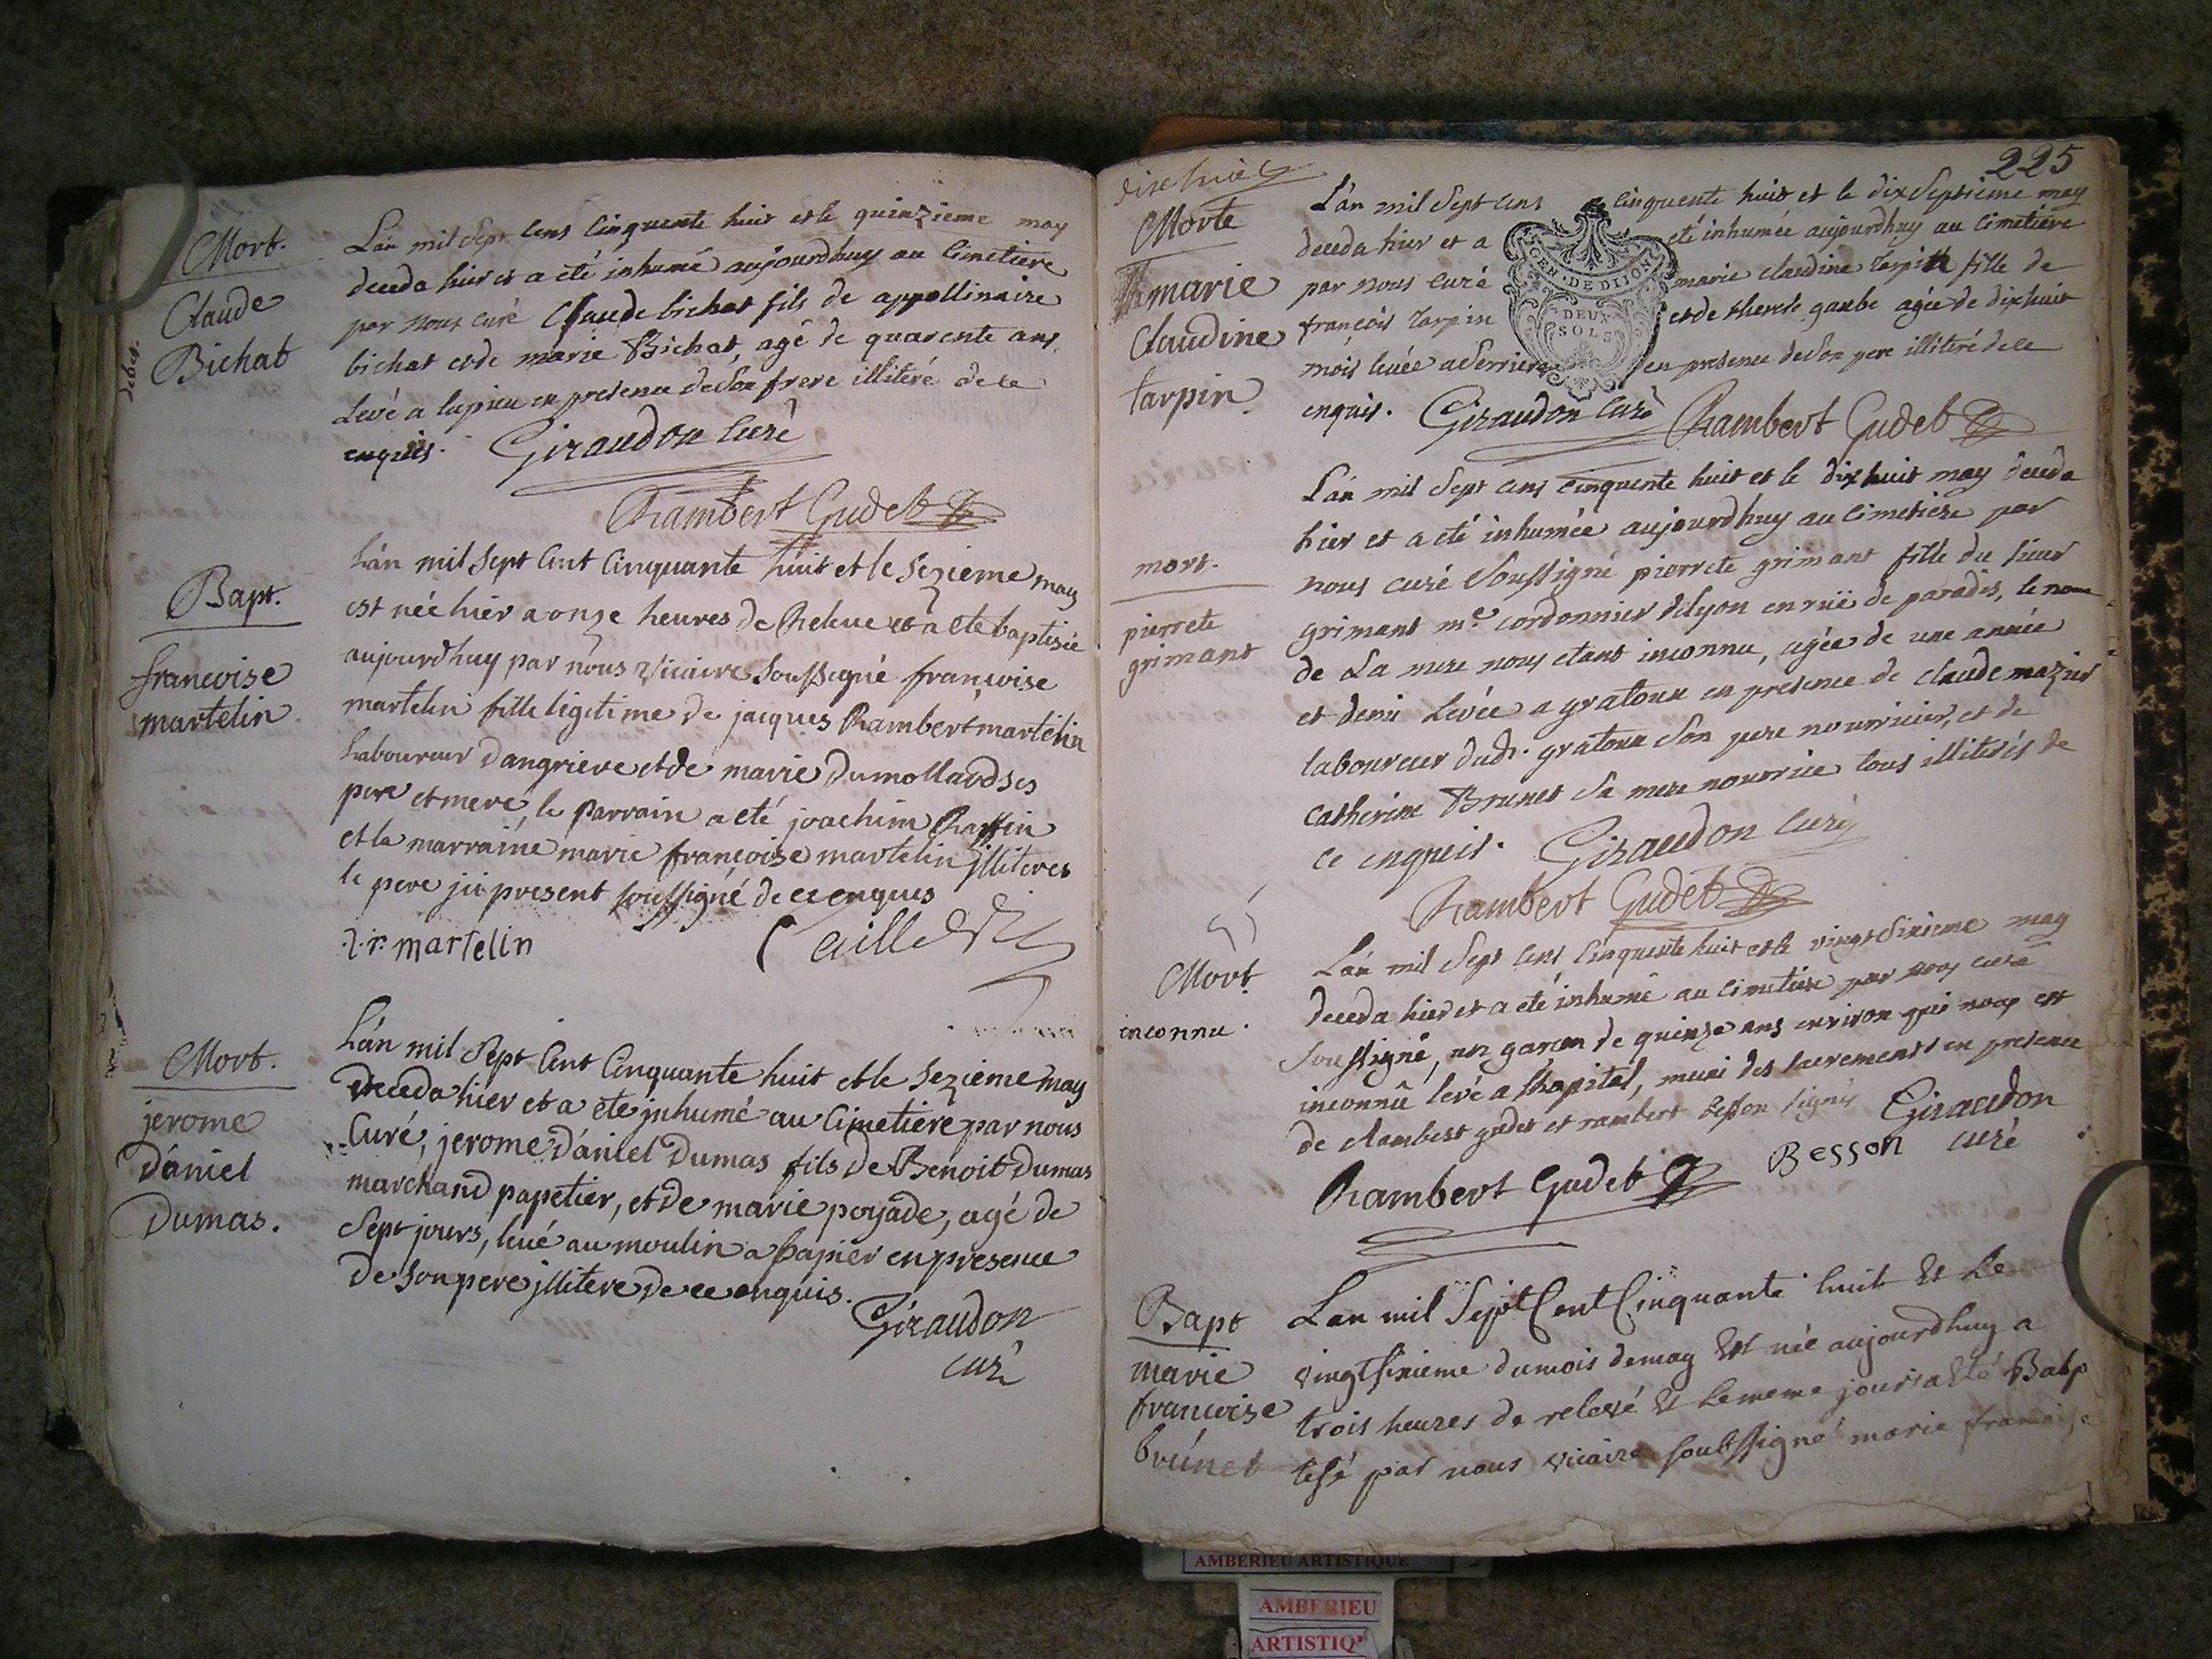 Mort.
Claude
Bichat
L'an mil Sept Cens Cinquente huit et le quinzieme may
deceda hier et a eté inhumé aujourdhuy au Cimetiere
par nous curé Claude bichat fils de appollinaire
bichat et de marie Bichat, agé de quarente ans,
Levé a lupieu en presence de Son frere illiteré de ce
enquis. Giraudon Curé
Rambert Gudet
Bapt.
francoise
martelin
L'an mil Sept Cent Cinquante huit et le Sezieme may
est née hier a onze heures de Releue et a ete baptisée
aujourdhuy par nous Vicaire Soussigné françoise
martelin fille legitime de jacques Rambert martelin
Laboureur dangrieve et de marie Dumollard Ses
pere et mere, le parrain a eté joachim
et la marraine marie françoise martelin illiteres
le pere ji present soussigné de ce enques
j. r. martelin
Mort.
jerome
Daniel
Dumas.
L'an mil Sept Cent Cinquante huit et le Sezieme may
deceda hier et a ete jnhumé au Cimetiere par nous
Curé, jerome Daniel Dumas fils de Benoit Dumas
marchand papetier, et de marie poyade, agé de
Sept jours, leué au moulin a papier en presence
de Son pere jllitere de ce enquis.
Giraudon
curé
225
dixhuit
Morte
marie
Claudine
tarpin.
L'an mil Sept cens cinquente huit et le dixSeptieme may
deceda hier et a eté inhumée aujourdhuy au Cimetiere
par nous curé marie claudine tarpin fille de
françois tarpin et de therese gaube agée de dixhuit
mois levée a Serriere en presence de Son pere illiteré de ce
enquis. Giraudon Curé Rambert Gudet
GEN. DE DIJON
DEUX
SOLS
mort.
pierrete
grimant
L'an mil Sept cens cinquente huit et le dixhuit may deceda
hier et a eté inhumée aujourdhuy au Cimetiere par
nous curé Soussigné pierrete grimant fille du sieur
grimant me cordonnier de lyon en rüe de paradis, le nom
de La mere nous etant inconnu, agée de une année
et demi Levée a gratoux en presence de claude mazuir
laboureur dudt. gratoux Son pere nourricier, et de
catherine Brunet Sa mere nourrice tous illiterés de
ce enquis. Giraudon curé
Rambert Gudet
Mort
inconnu.
L'an mil Sept cens Cinquente huit et le vingtSixieme may
deceda hier et a eté inhumé au cimetiere par nous curé
Soussigné, un garcon de quinze ans environ qui nous est
inconnû levé a lhopital, muni des sacrements en presence
de Rambert gudet et rambert besson signés Giraudon
curé
Besson
Rambert Gudet
Bapt
marie
francoise
brunet
Lan mil Sept Cent Cinquante huit Et Le
vingtsixieme dumois demay Est née aujourdhuy a
trois heures de relevé Et le meme jour a Eté Bap
tisé par nous vicaire soubssigné marie francoise
AMBERIEU ARTISTIQUE
AMBERIEU
ARTISTIQ